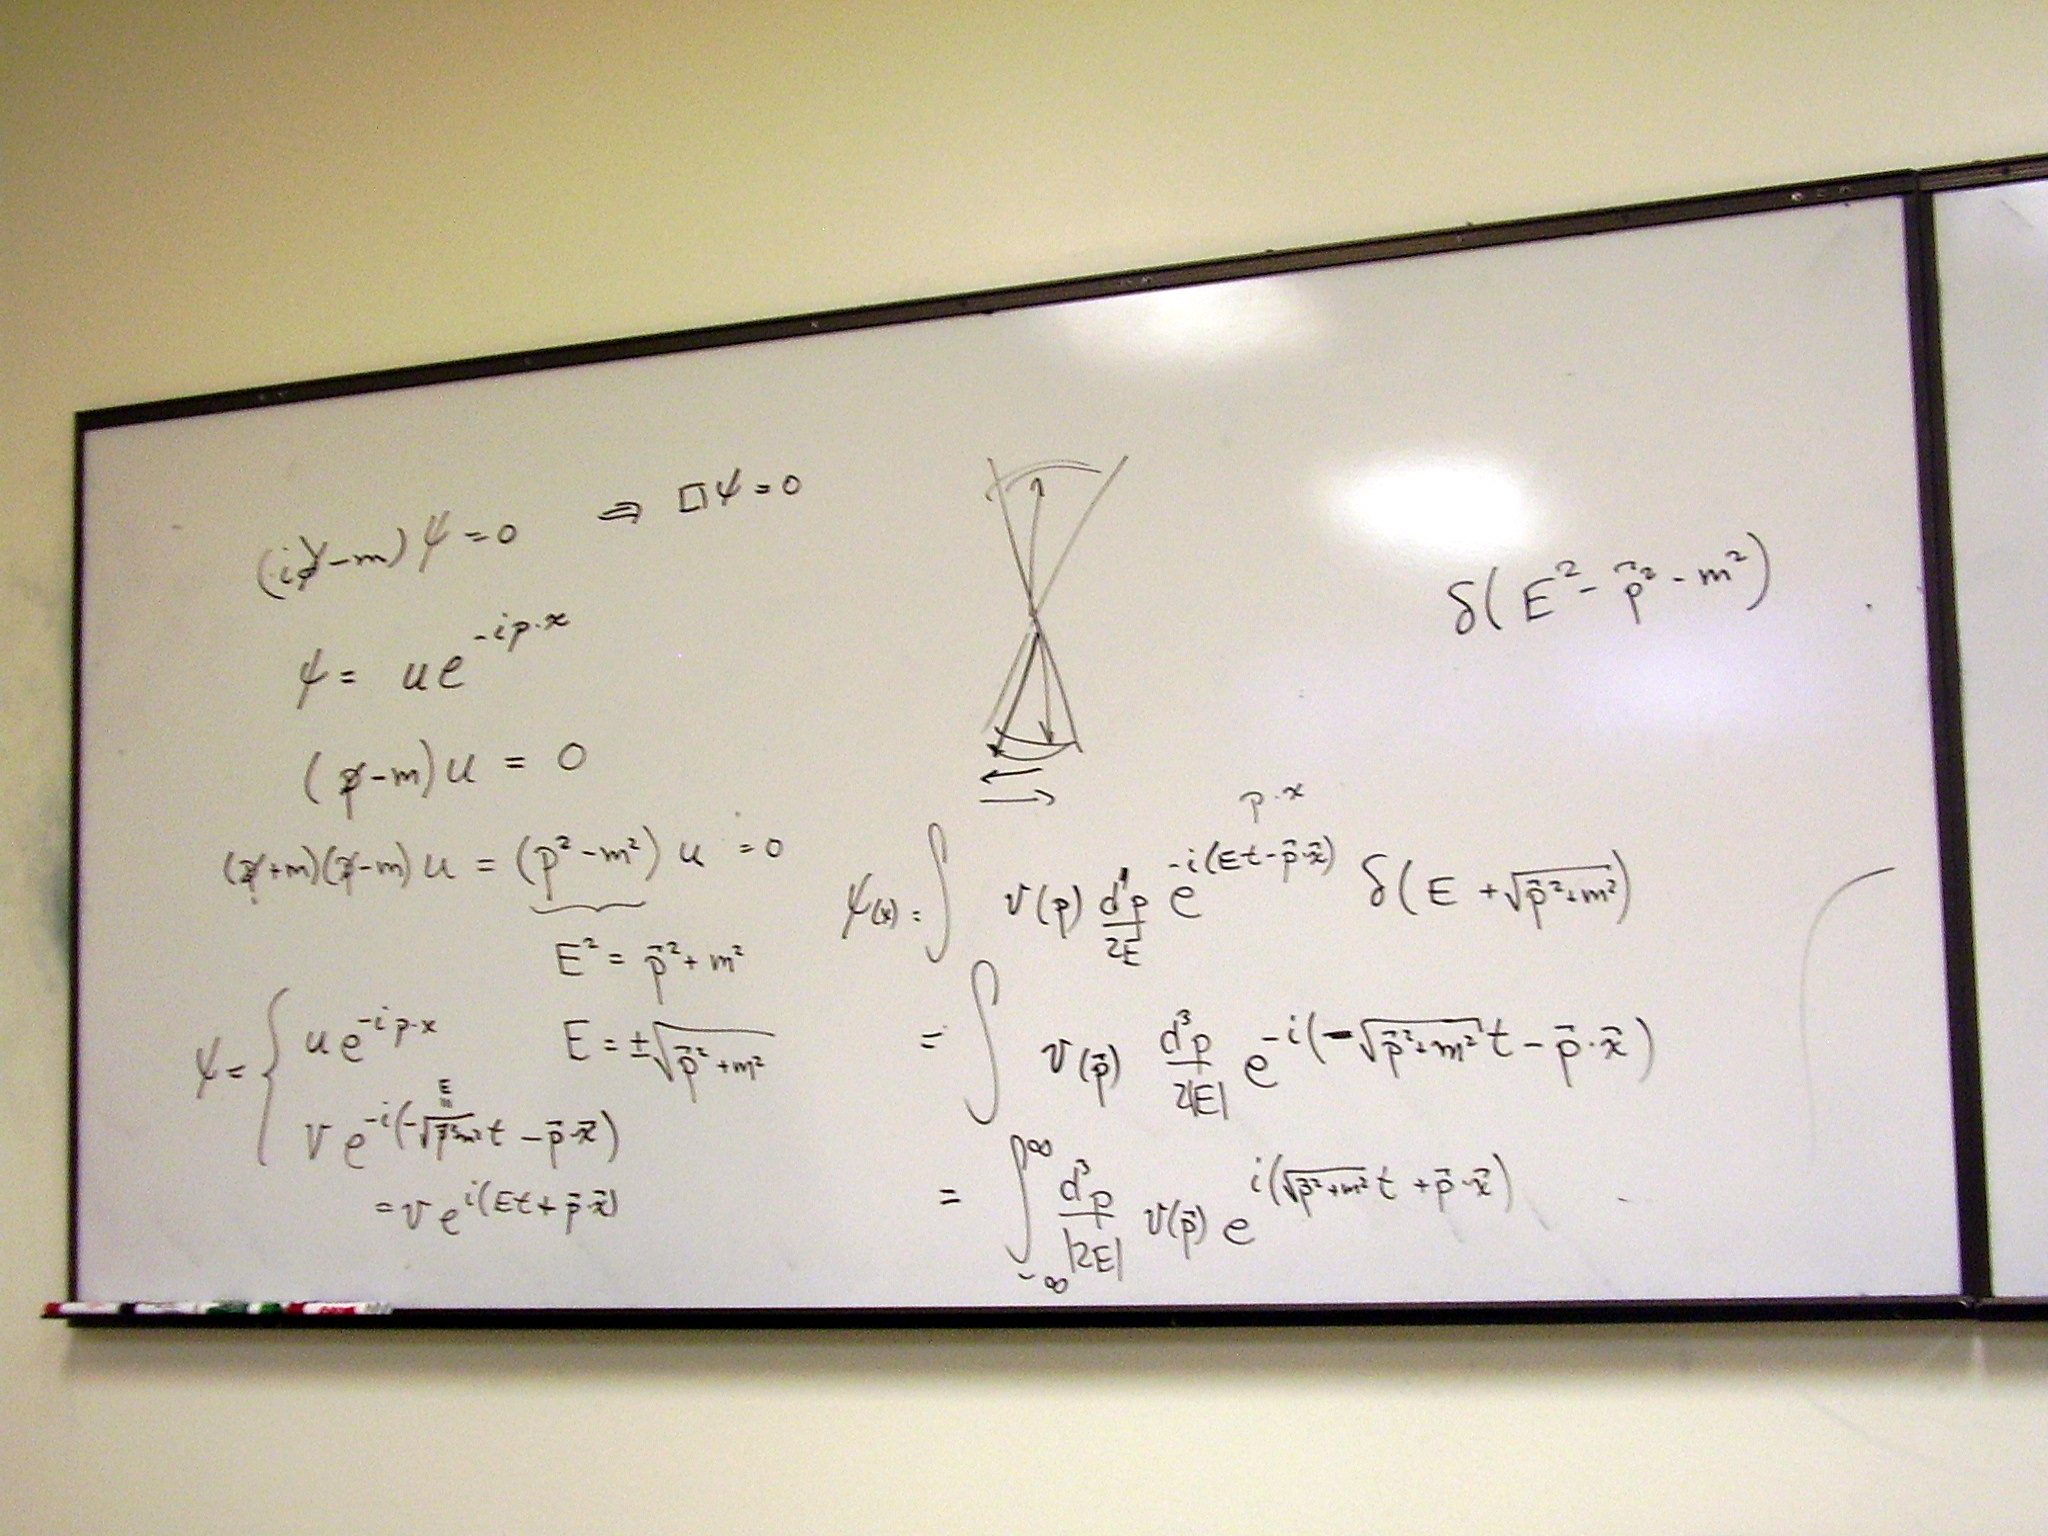 (i∂̸-m)ψ=0 ⇒ □ψ=0
ψ= ue^{-ip·x}
(p̸-m)u = 0
(p̸+m)(p̸-m)u = (p²-m²)u =0
E² = p⃗²+m²
ψ= { ue^{-ip·x}
E = ±√(p⃗²+m²)
E
=
ve^{-i(-√(p⃗²+m²)t - p⃗·x⃗)}
= ve^{i(Et+p⃗·x⃗)}
δ(E²-p⃗²-m²)
p·x
ψ(x) = ∫ v(p) d⁴p/2E e^{-i(Et-p⃗·x⃗)} δ(E+√(p⃗²+m²))
= ∫ v(p⃗) d³p/2|E| e^{-i(-√(p⃗²+m²)t-p⃗·x⃗)}
= ∫_{-∞}^{∞} d³p/|2E| v(p⃗) e^{i(√(p⃗²+m²)t+p⃗·x⃗)}